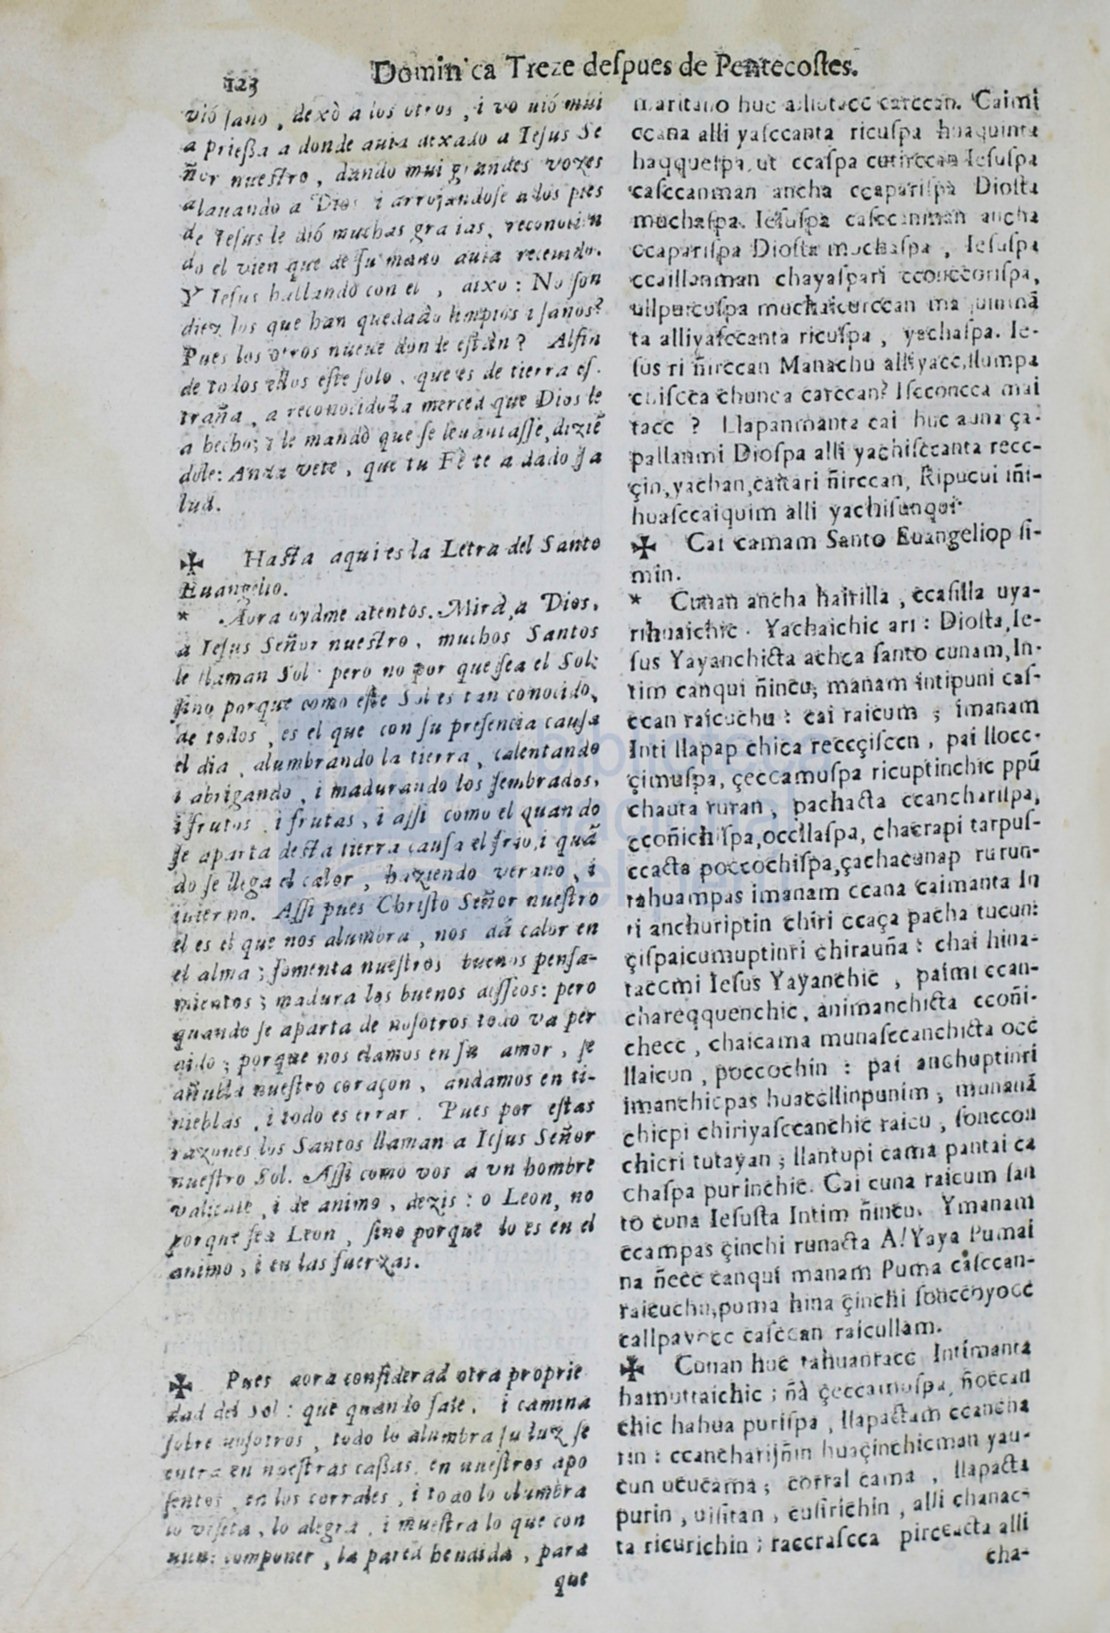 123
Dominica Treze despues de Pentecostes.
vió sano, dexò a los otros, i vo uió mui
a priessa a donde auia dexado a Iesus Se
ñor nuestro, dando mui grandes vozes
alauando a Dios i arrojandose a los pies
de Iesus le dió muchas gracias, reconocien
do el vien que de su mano auia receuido.
Y Iesus hallando con el, dixo: No son
diez los que han quedado limpios i sanos?
Pues los otros nueue donde estàn? Alfin
de todos ellos este solo, que es de tierra es.
traña, a reconocido la merced que Dios le
a hecho; i le mandò que se leuantasse, diziē
dole: Anda vete, que tu Fè te a dado sa
lud.
✠ Hasta aqui es la Letra del Santo
Euangelio.
* Aora oydme atentos. Mirà, a Dios,
a Iesus Señor nuestro, muchos Santos
le llaman Sol: pero no por que sea el Sol;
sino porque como este Sol es tan conocido,
de todos, es el que con su presencia causa
el dia, alumbrando la tierra, calentando
i abrigando, i madurando los sembrados,
i frutos, i frutas, i assi como el quando
se aparta desta tierra causa el frio, i quā
do se llega el calor, haziendo verano, i
inierno. Assi pues Christo Señor nuestro
el es el que nos alumbra, nos dá calor en
el alma; fomenta nuestros buenos pensa-
mientos; madura los buenos desseos: pero
quando se aparta de nosotros todo va per
dido; porque nos elamos en su amor, se
añubla nuestro coraçon, andamos en ti-
nieblas, i todo es errar. Pues por estas
razones los Santos llaman a Iesus Señor
nuestro Sol. Assi como vos a vn hombre
valiente, i de animo, dezis: o Leon, no
porque sea Leon, sino porque lo es en el
animo, i en las fuerzas.
✠ Pues aora considerad otra proprie
dad del Sol: que quando sale, i camina
sobre nosotros, todo lo alumbra su luz, se
entra en nuestras cassas, en nuestros apo
sentos, en los corrales, i todo lo alumbra
lo visita, lo alegra, i muestra lo que con
uiene componer, la pared hendida, para
que
huc carccan. Caimi
ccana alli yasccanta ricuspa huaquinta
haqquespa, cutirccan Iesuspa
casccanman ancha ccaparispa Diosta
muchaspa. Iesuspa casccanman ancha
ccaparispa Diosta muchaspa, Iesuspa
ccaillanman chayaspari cconccorispa,
ullpuicuspa muchaicurccan
ta alliyasccanta ricuspa, yachaspa. Ie-
sus ri ñirccan Manachu alliyacc, llumpa
chiscca chunca carccan? Iscconcca mai
tacc? Llapanmanta cai huc auna ça-
pallanmi Diospa alli yachisccanta recc-
çin, yachan, caitari ñirccan, Ripucui iñi-
huasccaiquim alli yachisunqui.
✠ Cai camam Santo Euangeliop si-
min.
* Cunan ancha hairilla, ccasilla uya-
rihuaichic. Yachaichic ari: Diosta, Ie-
sus Yayanchicta achca santo cunam, In-
tim canqui ñincu, manam intipuni cas-
ccan raicuchu: cai raicum; imanam
Inti llapap chica reccçisccn, pai llocc-
çimuspa, çeccamuspa ricuptinchic ppū
chauta ruran, pachacta ccancharispa,
cconichispa, occllaspa, chacrapi tarpus-
ccacta poccochispa, çachacunap rurun-
tahuampas imanam ccana caimanta In
ti anchuriptin chiri ccaça pacha tucun:
çispaicumuptinri chirauña: chai hina-
taccmi Iesus Yayanchic, paimi ccan-
chareqquenchic, animanchicta cconi-
checc, chaicama munasccanchicta occ
llaicun, poccochin: pai anchuptinri
imanchicpas huatcllinpunim, munanā
chicpi chiriyasccanchic raicu, soncco n
chicri tutayan; llantupi cama pantai ca
chaspa purinchic. Cai cuna raicum san
to cuna Iesusta Intim ñincu. Ymanam
ccampas çinchi runacta A! Yaya Pumai
na ñecc canqui manam Puma casccan-
raicuchu, puma hina çinchi soncc oyocc
callpayocc casccan raicullam.
✠ Cunan huc tahuantacc Intimanta
hamuttaichic; ñà çeccamuspa, ñoccan
chic hahua purispa, llapactam ccancha
rin: ccancharijñin huaçinchicman yau-
cun ucucama; corral cama, llapacta
purin, uisitan, cusirichin, alli chanac-
ta ricurichin; raccrascca pirccacta alli
cha-